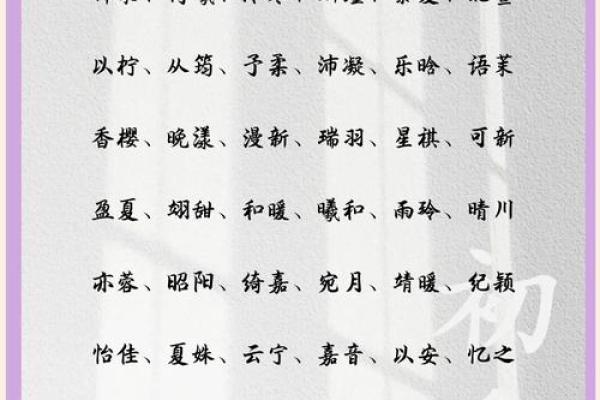 以柠、从筠、予柔、沛凝、乐晗、语茉
香樱、晚漾、漫新、瑞羽、星祺、可新
盈夏、翊甜、和暖、曦和、雨玲、晴川
亦蓉、昭阳、绮嘉、宛月、靖暖、纪颖
怡佳、夏姝、云宁、嘉音、以安、忆之
初